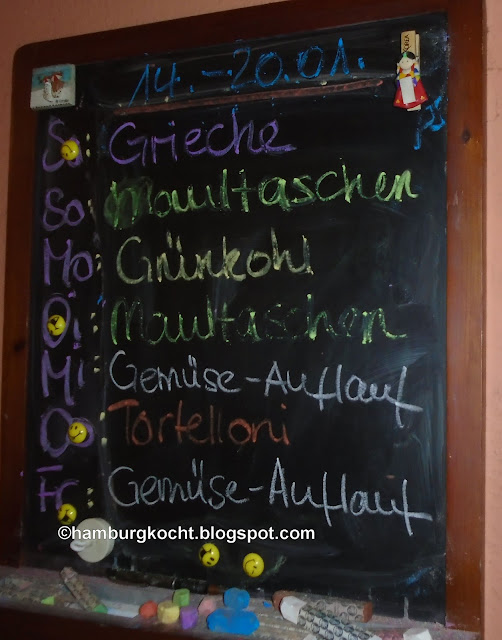 14.-20.01.
Sa: Grieche
So: Maultaschen
Mo: Grünkohl
Di: Maultaschen
Mi: Gemüse-Auflauf
Do: Tortelloni
Fr: Gemüse-Auflauf
©hamburgkocht.blogspot.com